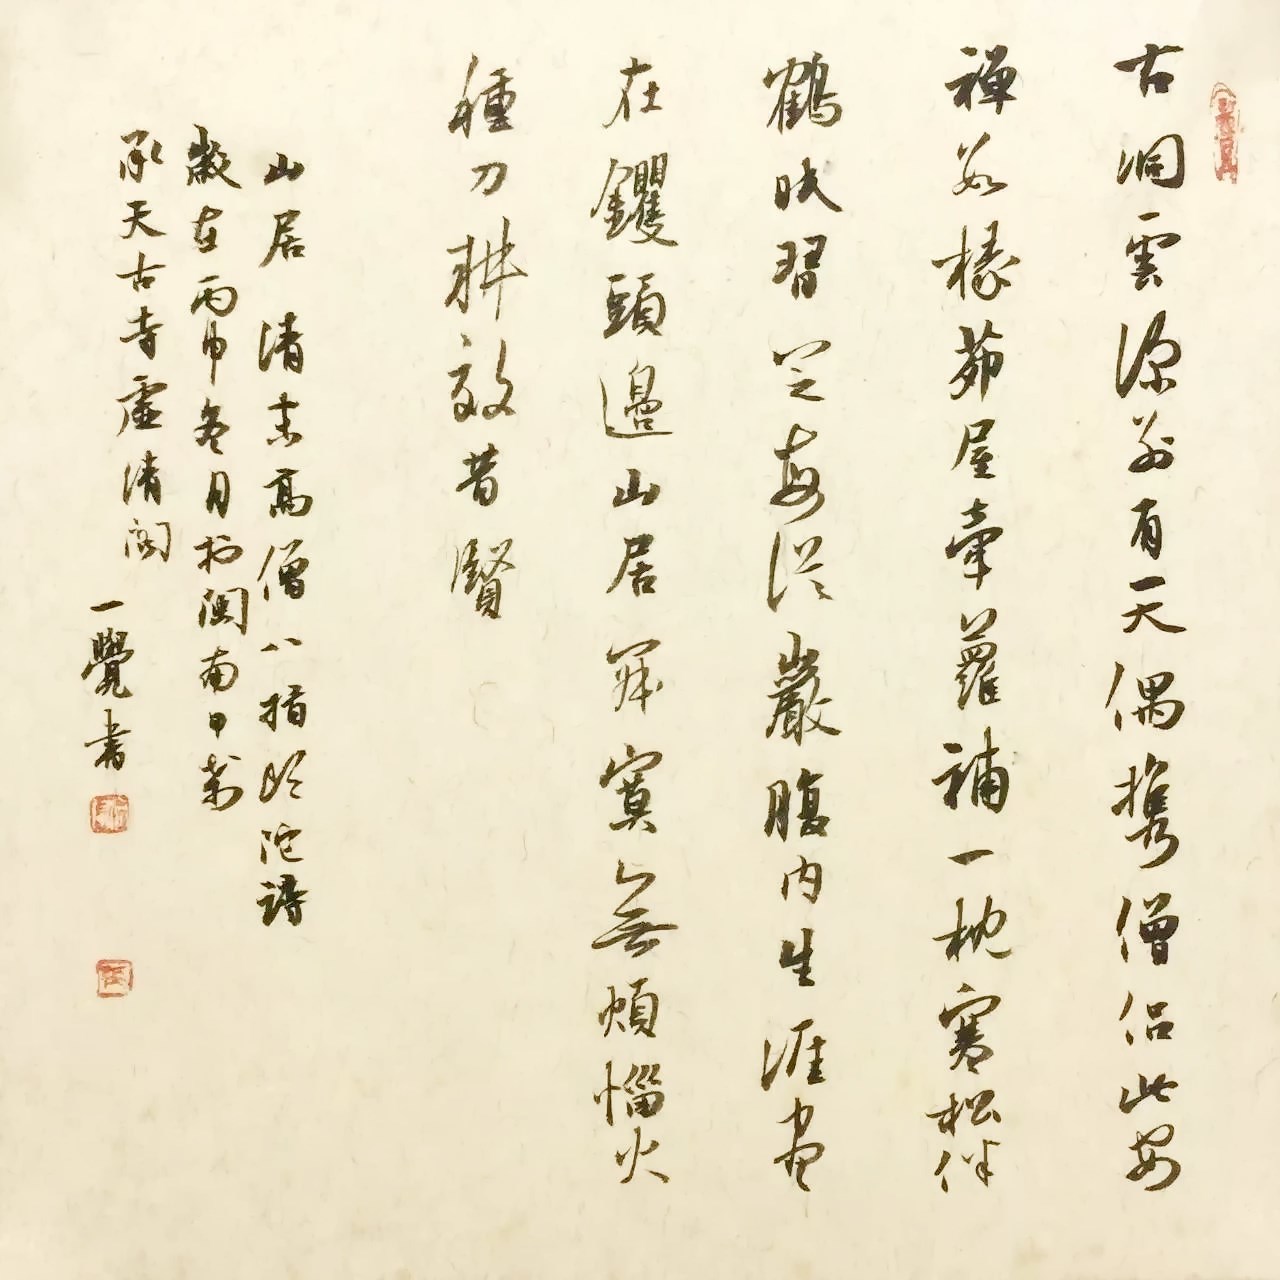 古洞雲深別有天偶攜僧侶此安
禪數椽茆屋牽蘿補一枕寒松伴
鶴眠習定每從巖腹內生涯盡
在钁頭邊山居寂寞無煩惱火
種刀耕效昔賢
山居 清末高僧八指頭陀詩
歲在丙申冬月於閩南甲
承天古寺虛清閣
一覺書